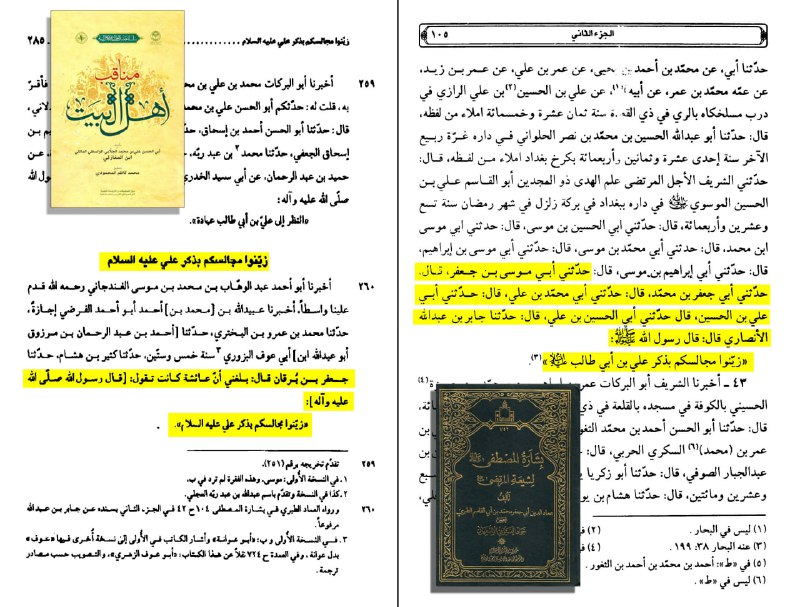 الجزء الثاني ١٠٥
حدّثنا أبي، عن محمّد بن أحمد بن يحيى، عن عمر بن علي، عن عمر بن زيد،
عن عمّه محمّد بن عمر، عن أبيه، عن علي بن الحسين(٢) بن علي الرازي في
درب مسلخكاه بالري في ذي القعدة سنة ثمان عشرة وخمسمائة املاء من لفظه،
قال: حدّثنا أبو عبدالله الحسين بن محمّد بن نصر الحلواني في داره غرّة ربيع
الآخر سنة إحدى عشرة وثمانين وأربعمائة بكرخ بغداد املاء من لفظه، قال:
حدّثني الشريف الأجل المرتضى علم الهدى ذو المجدين أبو القاسم علي بن
الحسين الموسوي في داره ببغداد في بركة زلزل في شهر رمضان سنة تسع
وعشرين وأربعمائة، قال: حدّثني أبي الحسين بن موسى، قال: حدثني ابي موسى
ابن محمد، قال: حدّثني أبي محمّد بن موسى، قال: حدّثني أبي موسى بن إبراهيم،
قال: حدّثني أبي إبراهيم بن موسى، قال: حدّثني أبي موسى بن جعفر، قال:
حدّثني أبي جعفر بن محمّد، قال: حدّثني أبي محمّد بن علي، قال: حدّثني أبي
علي بن الحسين، قال حدّثني أبي الحسين بن علي، قال: حدّثنا جابر بن عبدالله
الأنصاري قال: قال رسول الله ﷺ:
«زيّنوا مجالسكم بذكر علي بن أبي طالب».(٣)
٤٣ ـ أخبرنا الشريف أبو البركات عمر بن
الحسيني بالكوفة في مسجده بالقلعة في ذي
قال: حدّثنا أبو الحسن أحمد بن محمّد
عمر بن (محمد)(٦) السكري الحربي، قال:
عبدالجبار الصوفي، قال: حدّثنا أبو زكريا
وعشرين ومائتين، قال: حدّثنا هشام بن
(١) ليس في البحار.
(٢)
(٣) عنه البحار ٣٨: ١٩٩.
(٤)
(٥) في «ط»: أحمد بن محمّد بن أحمد بن الثغور.
(٦) ليس في «ط».
بشارة المصطفى
لشيعة المرتضى
تأليف
عماد الدين أبي جعفر محمد بن أبي القاسم الطبري
زيّنوا مجالسكم بذكر علي عليه السلام ٢٨٥
مناقب
أهل البيت
ابن المغازلي
محمد كاظم المحمودي
٢٥٩ أخبرنا أبو البركات محمد بن علي بن فأقرّ
به، قلت له: حدّثكم أبو الحسن علي بن محمد
قال: حدّثنا أبو الحسن أحمد بن إسحاق، بن
إسحاق الجعفي، حدّثنا محمد٢ بن عبد ربّه، عن
حميد بن عبد الرحمان، عن أبي سعيد الخدري الله
صلّى الله عليه وآله:
«النظر إلى عليّ بن أبي طالب عبادة».
زيّنوا مجالسكم بذكر علي عليه السلام
٢٦٠ أخبرنا أبو أحمد عبد الوهّاب بن محمد بن موسى الغندجاني رحمه الله قدم
علينا واسطاً، أخبرنا عبيدالله بن [محمد بن] أحمد أبو أحمد الفرضي إجازةً،
حدّثنا محمد بن عمرو بن البختري، حدّثنا [أحمد بن عبد الرحمان بن مرزوق
أبو عبدالله ابن] أبي عوف البزوري٣ سنة خمس وستّين، حدّثنا كثير بن هشام، حدّثنا
جعفر بن بُرقان قال: بلغني أنّ عائشة كانت تقول: [قال رسول الله صلّى الله
عليه وآله]:
«زيّنوا مجالسكم بذكر علي عليه السلام».
٢٥٩ تقدّم تخريجه برقم (٢٥١).
١. في النسخة الأولى: موسى. وهذه الفقرة لم ترد في ب.
٢. كذا في النسخة وتقدّم باسم عبدالله بن عبد ربّه العجلي.
٢٦٠ و رواه العماد الطبري في بشارة المصطفى ١٠٤ ح ٤٢ في الجزء الثاني بسنده عن جابر بن عبدالله
مرفوعاً.
٣. في النسخة الأولى و ب: «أبو عوانة» وأشار الكاتب في الأولى إلى نسخة أخرى فيها «عوف»
بدل عوانة. وفي العمدة ح ٢٢٤ نقلاً عن هذا الكتاب: «أبو عوف الزهري»، والتصويب حسب مصادر
ترجمة.